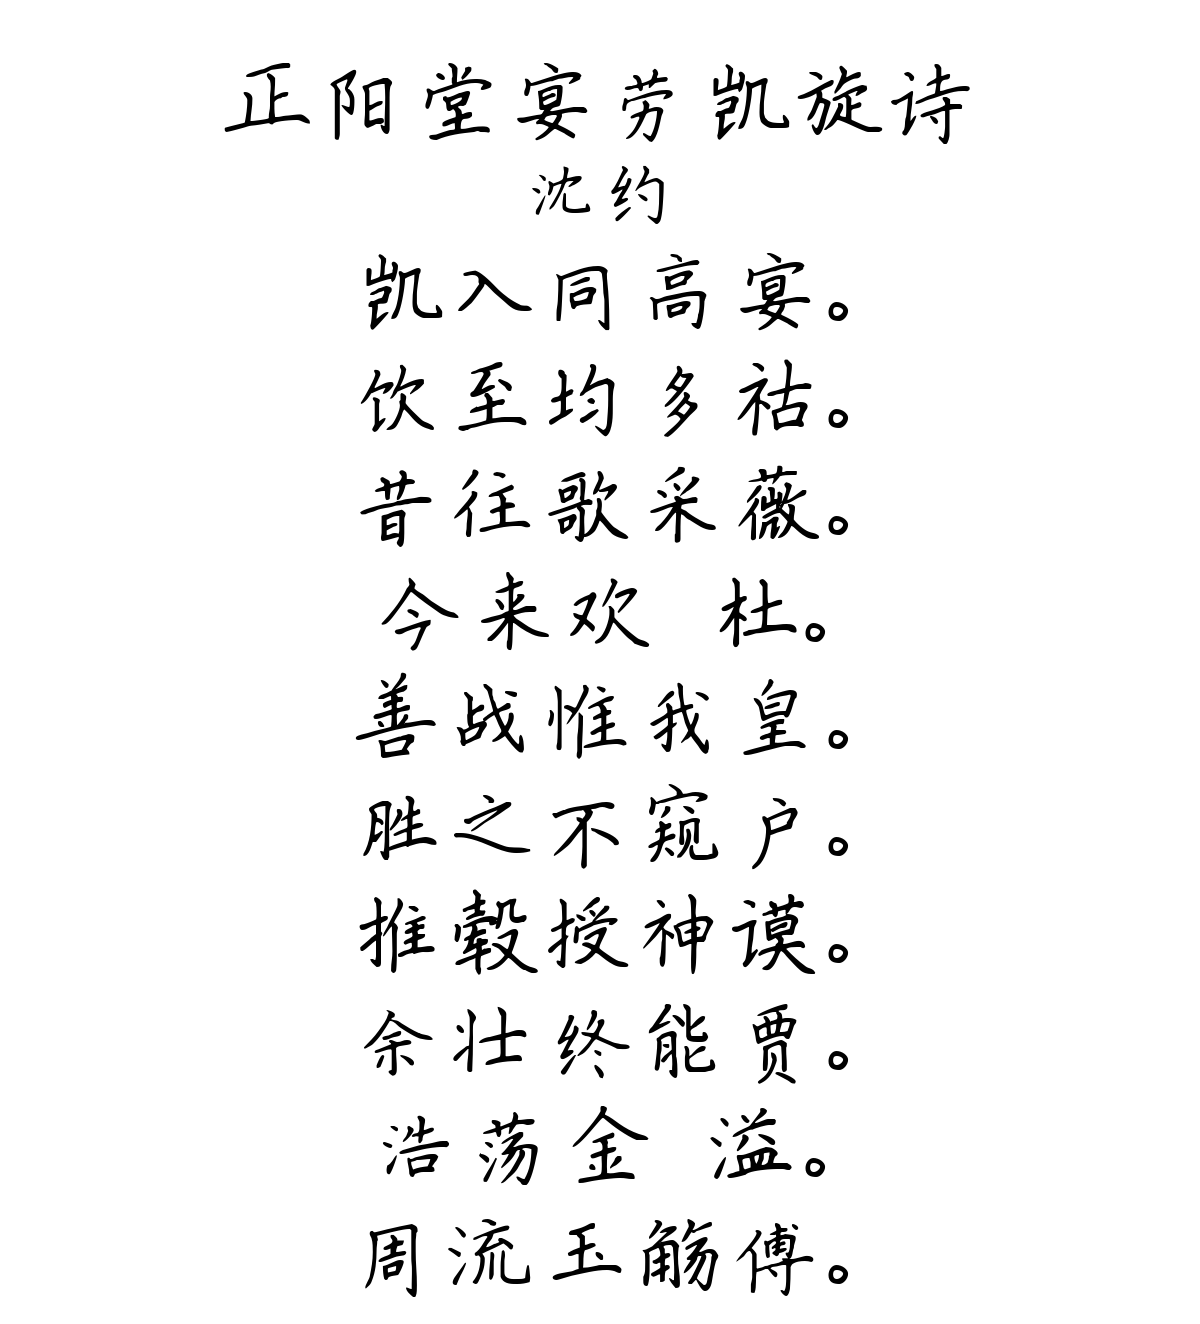 正阳堂宴劳凯旋诗
沈约
凯入同高宴。
饮至均多祜。
昔往歌采薇。
今来欢 杜。
善战惟我皇。
胜之不窥户。
推毂授神谟。
余壮终能贾。
浩荡金 溢。
周流玉觞傅。